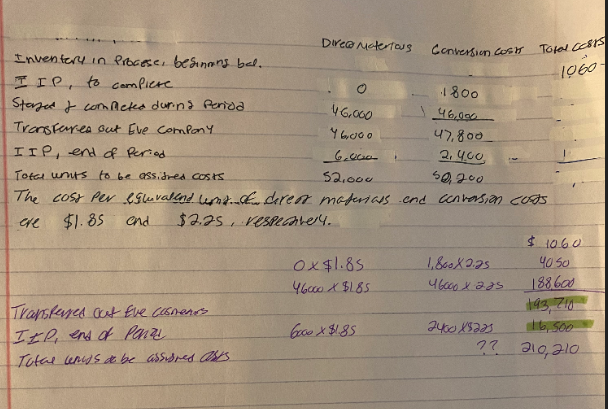 Direct Materials Conversion Costs Total Costs
Inventory in Process, beginning bal. 1060
IIP, to complete 0 1800
Started & completed during Period 46,000 46,000
Transferred out Eve Company 46,000 47,800
IIP, end of Period 6,000 2,400
Total units to be assigned costs 52,000 50,200
The cost per equivalent unit of direct materials and conversion costs
are $1.85 and $2.25, respectively.
$ 1060
0 x $1.85 1,800 x 2.25 4050
46000 x $1.85 46000 x 2.25 188,600
Transferred out Eve 193,710
IIP, end of Period 6000 x $1.85 2400 x $2.25 16,500
Total units to be assigned costs ?? 210,210